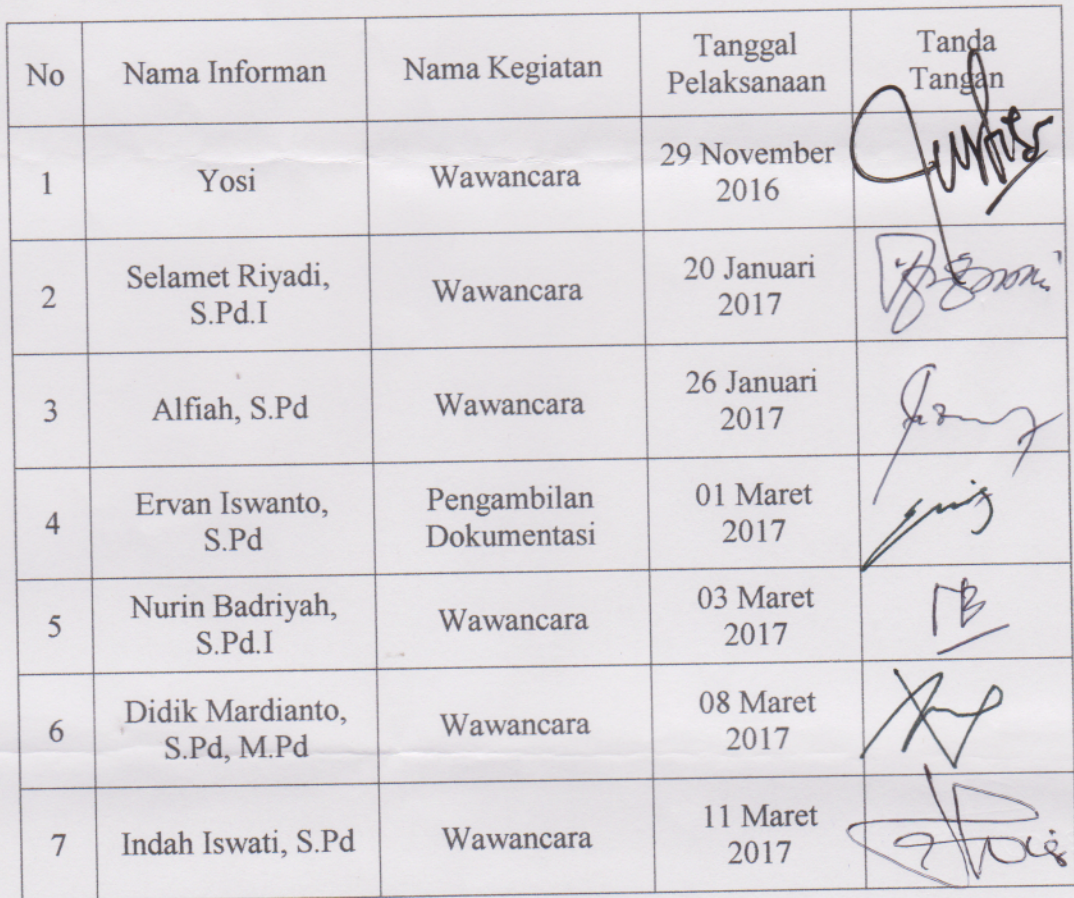 No
Nama Informan
Nama Kegiatan
Tanggal
Pelaksanaan
Tanda
Tangan
1
Yosi
Wawancara
29 November
2016
2
Selamet Riyadi,
S.Pd.I
Wawancara
20 Januari
2017
3
Alfiah, S.Pd
Wawancara
26 Januari
2017
4
Ervan Iswanto,
S.Pd
Pengambilan
Dokumentasi
01 Maret
2017
5
Nurin Badriyah,
S.Pd.I
Wawancara
03 Maret
2017
6
Didik Mardianto,
S.Pd, M.Pd
Wawancara
08 Maret
2017
7
Indah Iswati, S.Pd
Wawancara
11 Maret
2017